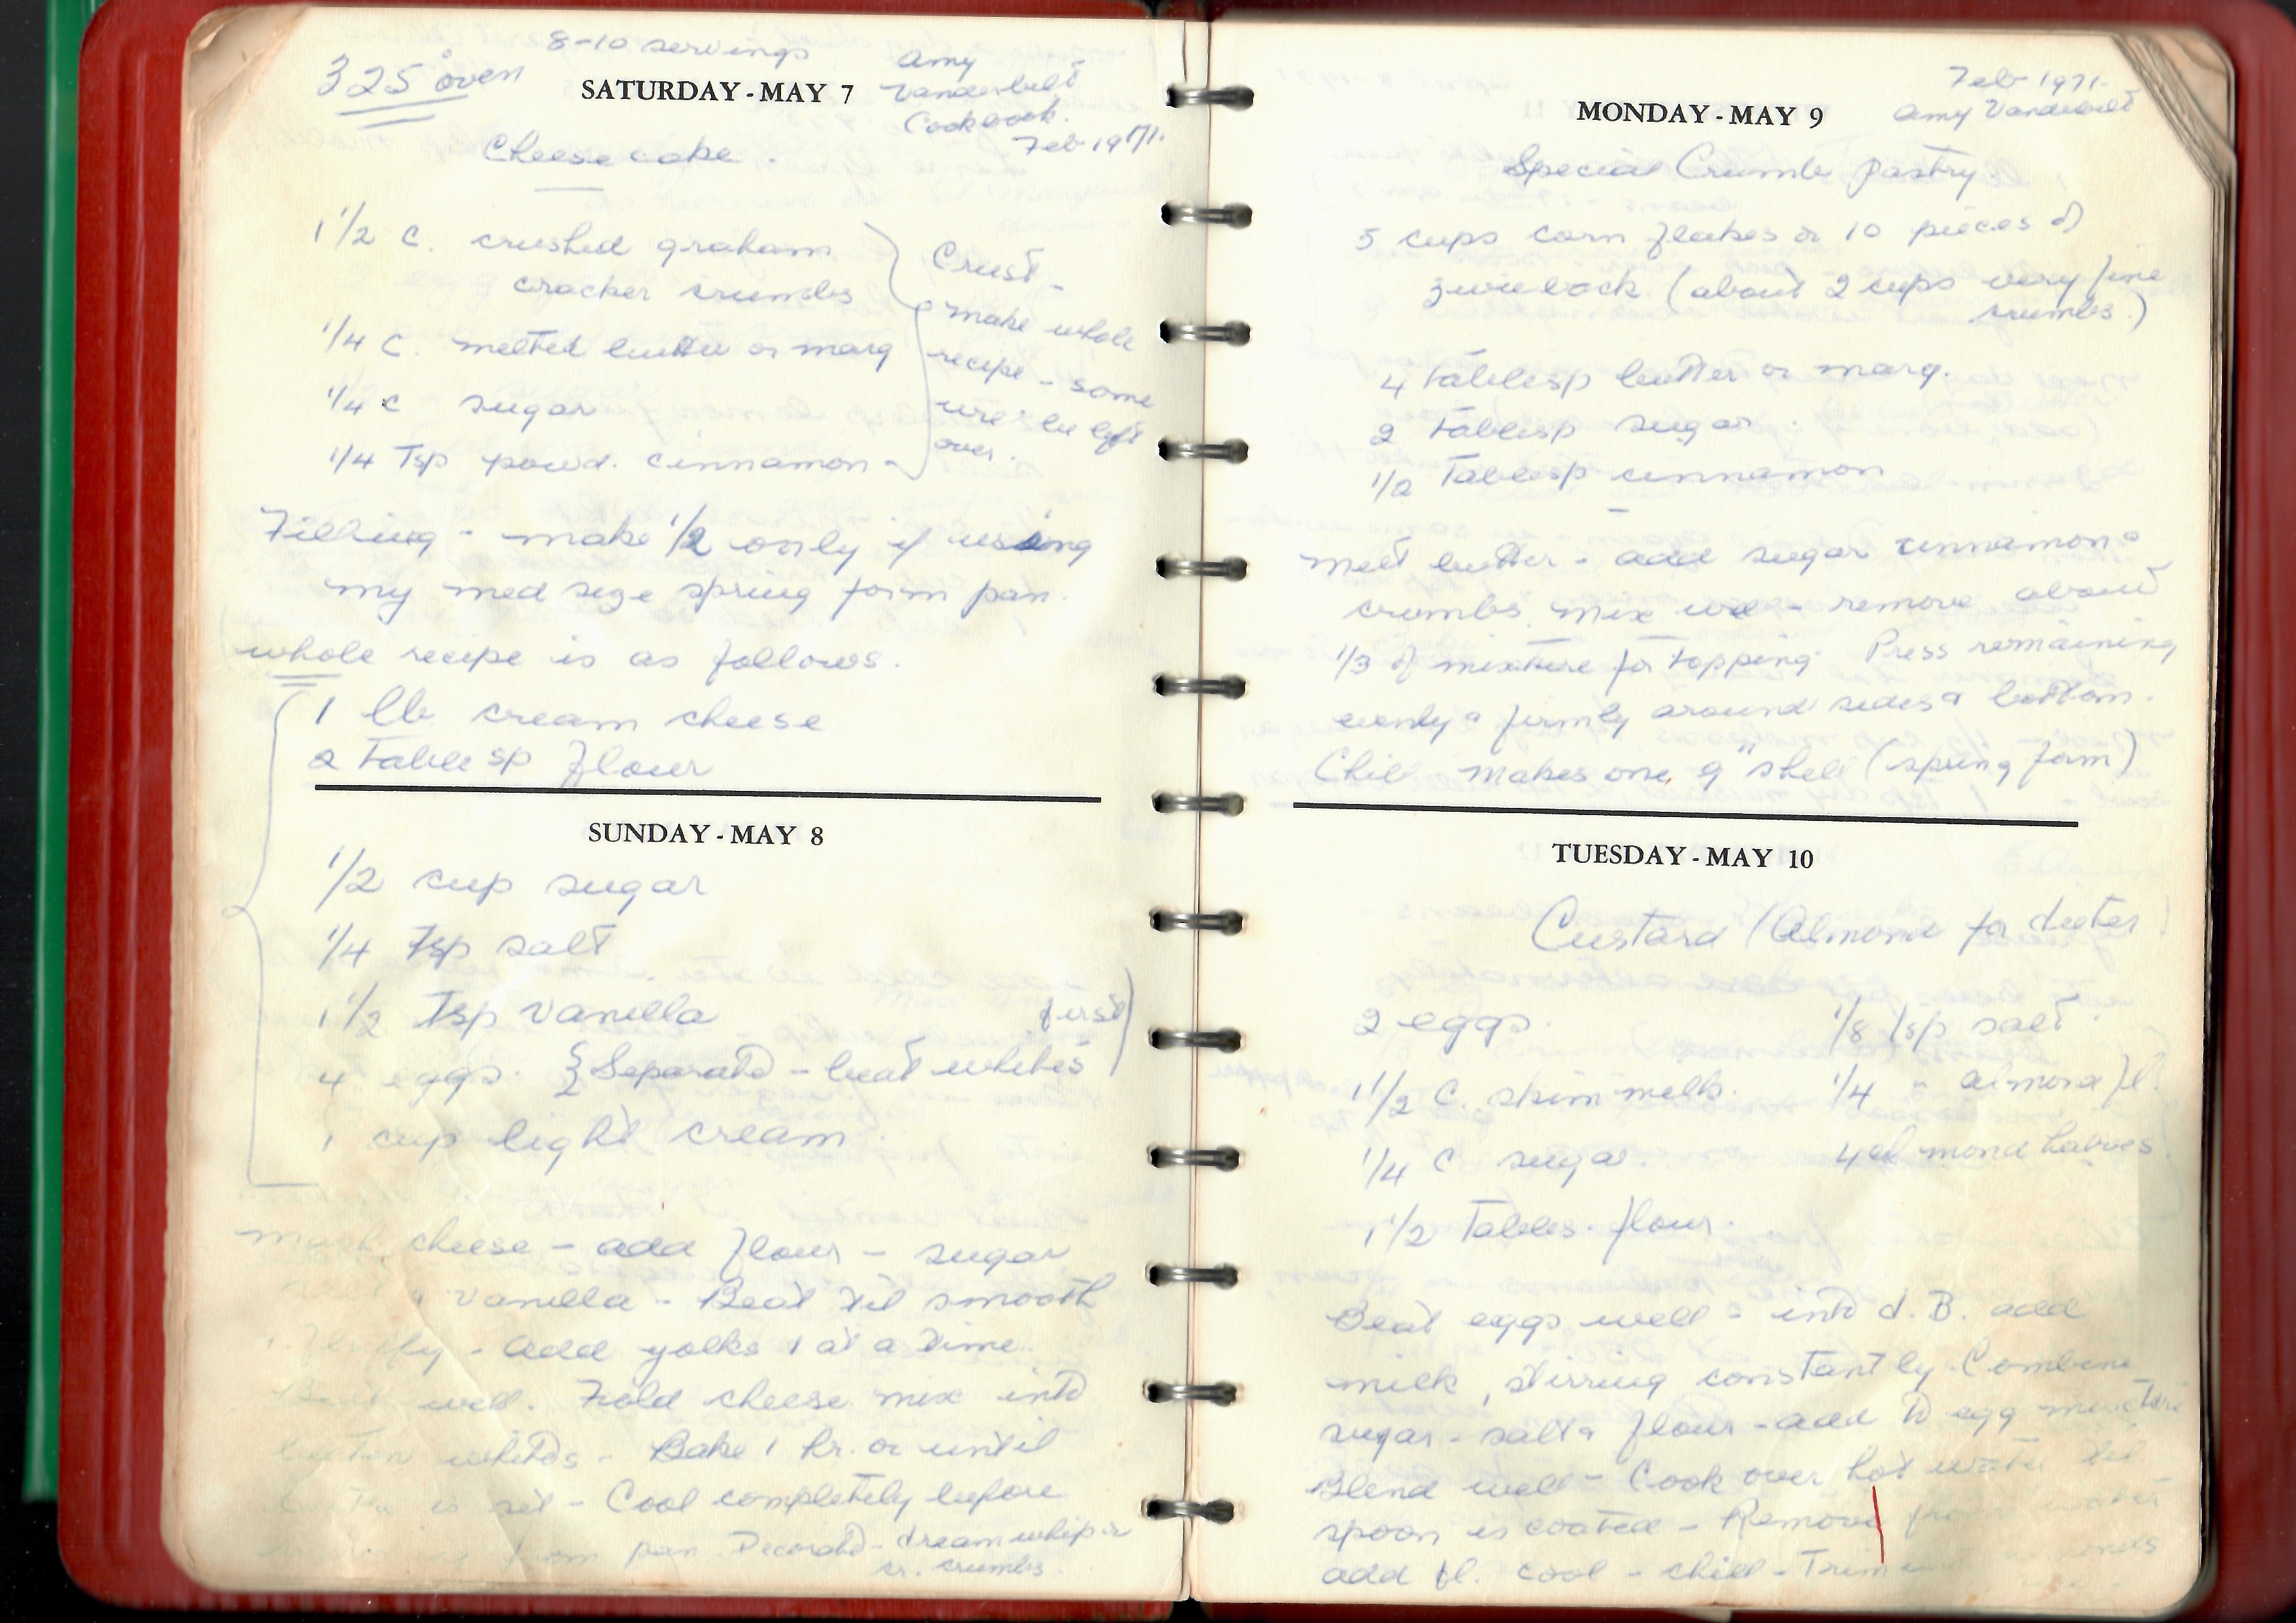 8-10 servings
325° oven
SATURDAY - MAY 7
Amy
Vanderbilt
Cookbook.
Feb 1971.
Cheese cake.
1 1/2 c. crushed graham
cracker crumbs
1/4 c. melted butter or marg
1/4 c sugar
1/4 Tsp powd. cinnamon
Crust -
make whole
recipe - some
will be left
over.
Filling - make 1/2 only if using
my med size spring form pan.
whole recipe is as follows.
1 lb. cream cheese
2 Tablesp flour
SUNDAY - MAY 8
1/2 cup sugar
1/4 Tsp salt
1 1/2 Tsp vanilla
4 eggs. { Separate - beat whites first)
1 cup light cream.
mash cheese - add flour - sugar
salt & vanilla - Beat til smooth
& fluffy - add yolks 1 at a time.
Beat well. Fold cheese mix into
beaten whites - Bake 1 hr. or until
center is set - Cool completely before
from pan. Decorate - dream whip or
cr. crumbs.
Feb 1971.
MONDAY - MAY 9
Amy Vanderbilt
Special Crumb Pastry
5 cups corn flakes or 10 pieces of
zwieback (about 2 cups very fine
crumbs.)
4 Tablesp butter or marg.
2 Tablesp sugar.
1/2 Tablesp cinnamon
Melt butter - add sugar cinnamon &
crumbs. Mix well - remove about
1/3 of mixture for topping. Press remaining
evenly & firmly around sides & bottom.
Chill Makes one 9" shell (spring form)
TUESDAY - MAY 10
Custard (Almond for dieter)
2 eggs. 1/8 tsp salt.
1 1/2 C. skim milk. 1/4 " almond fl.
1/4 C sugar. 4 almond halves
1 1/2 Tables. flour.
Beat eggs well - into d. B. add
milk, stirring constantly. Combine
sugar - salt & flour - add to egg mixture
Blend well - Cook over hot water til
spoon is coated - Remove from water
add fl. cool - chill - Trim almonds